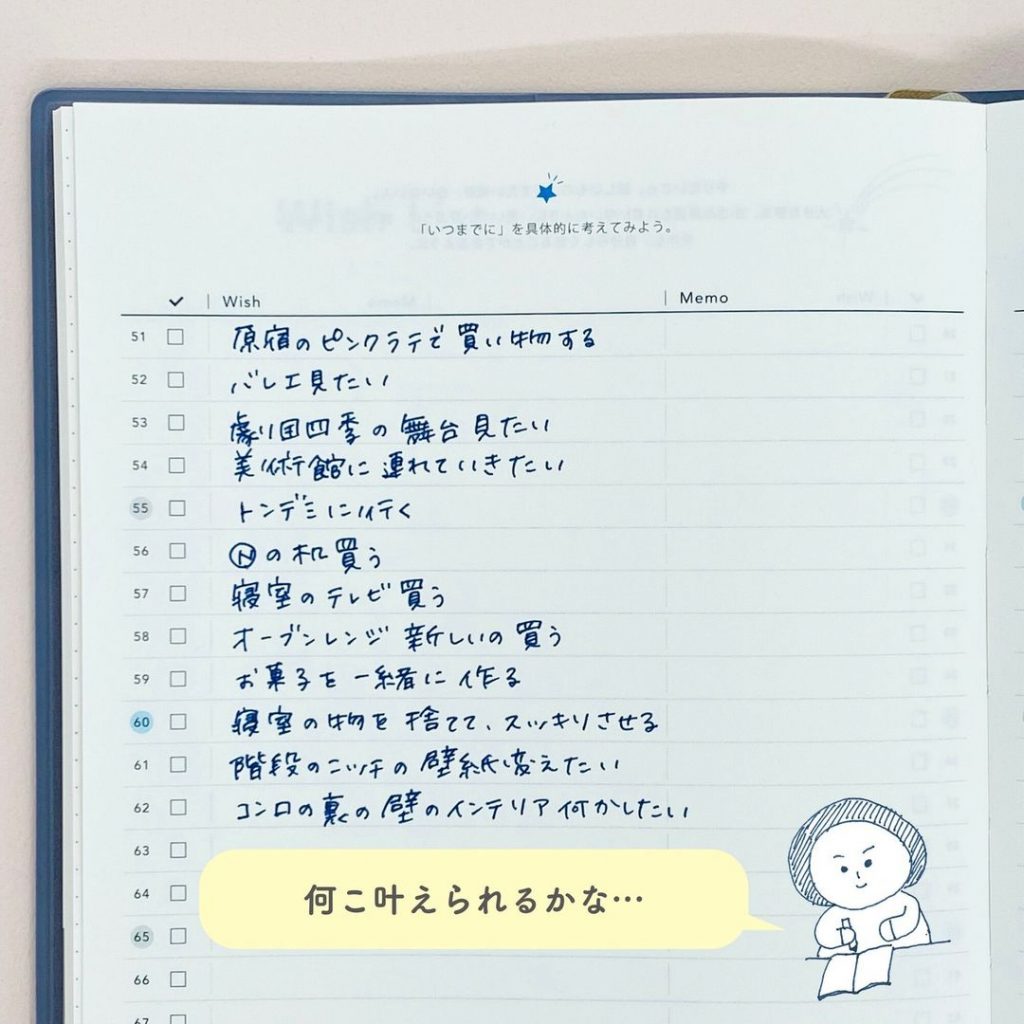 「いつまでに」を具体的に考えてみよう。
✓ | Wish | Memo
51 □ 原宿のピンクラテで買い物する
52 □ バレエ見たい
53 □ 劇団四季の舞台見たい
54 □ 美術館に連れていきたい
55 □ トンデミに行く
56 □ Ⓝの机買う
57 □ 寝室のテレビ買う
58 □ オーブンレンジ新しいの買う
59 □ お菓子を一緒に作る
60 □ 寝室の物を捨てて、スッキリさせる
61 □ 階段のニッチの壁紙変えたい
62 □ コンロの裏の壁のインテリア何かしたい
63 □
64 □
65 □
66 □
67 □
何こ叶えられるかな…